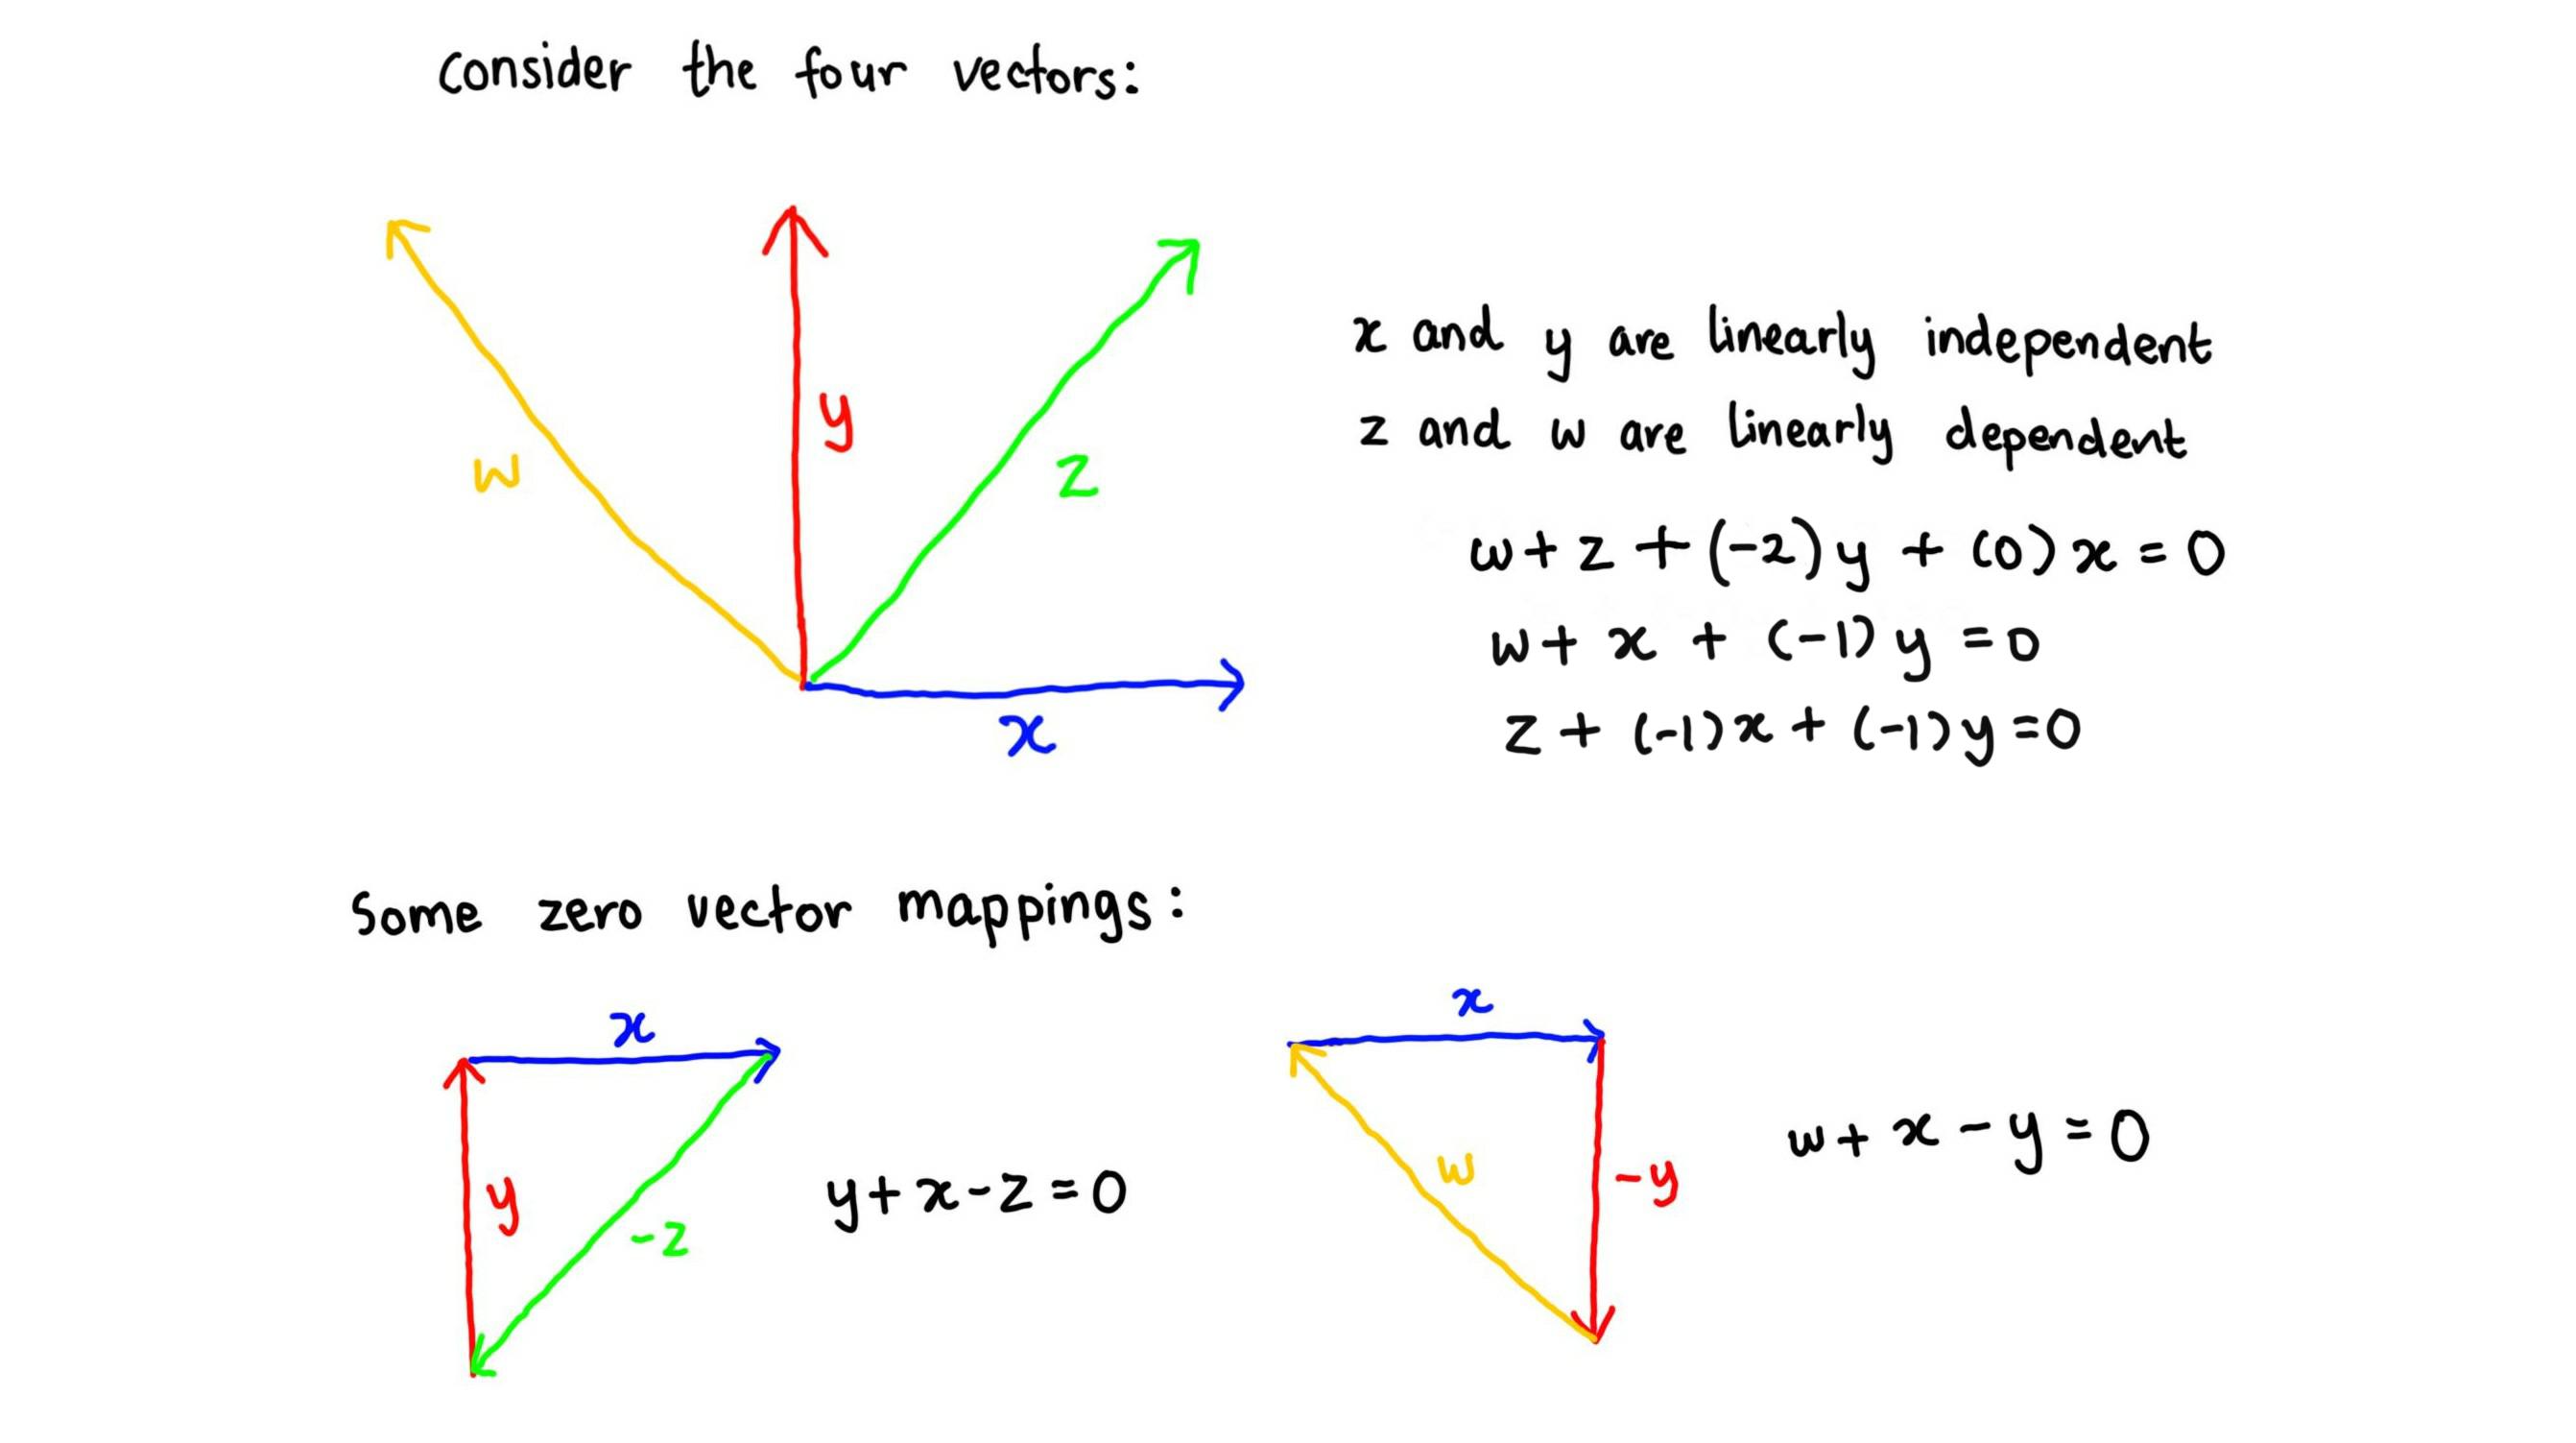 Consider the four vectors:
w
y
z
x
x and y are linearly independent
z and w are linearly dependent
w + z + (-2) y + (0) x = 0
w + x + (-1) y = 0
z + (-1) x + (-1) y = 0
Some zero vector mappings:
x
y
-z
y + x - z = 0
x
w
-y
w + x - y = 0